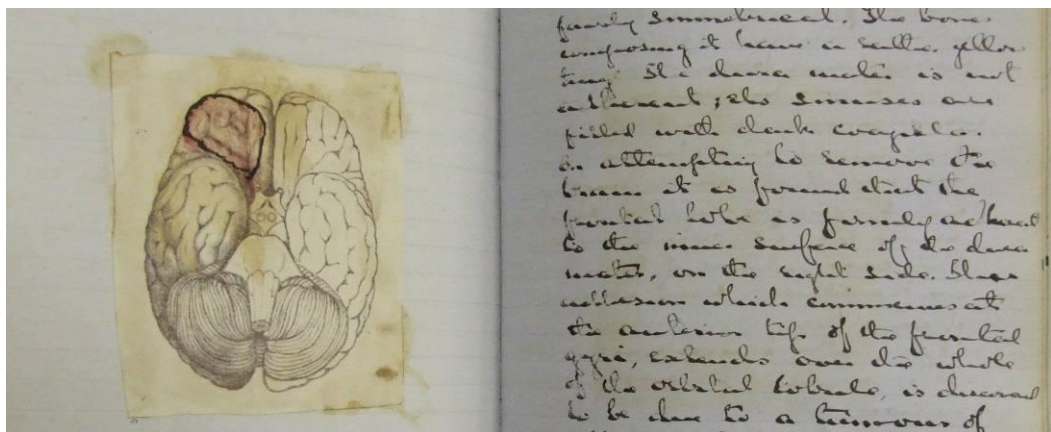 fairly symmetrical. The bones
composing it have a yellow
ting. The dura mater is not
adherent; its sinuses are
filled with dark coagula.
On attempting to remove the
brain it is found that the
frontal lobe is firmly adherent
to the inner surface of the dura
mater, on the right side. This
adhesion which commences at
the anterior tip of the frontal
gyri, extends over the whole
of the orbital lobule, is discovered
to be due to a tumour of